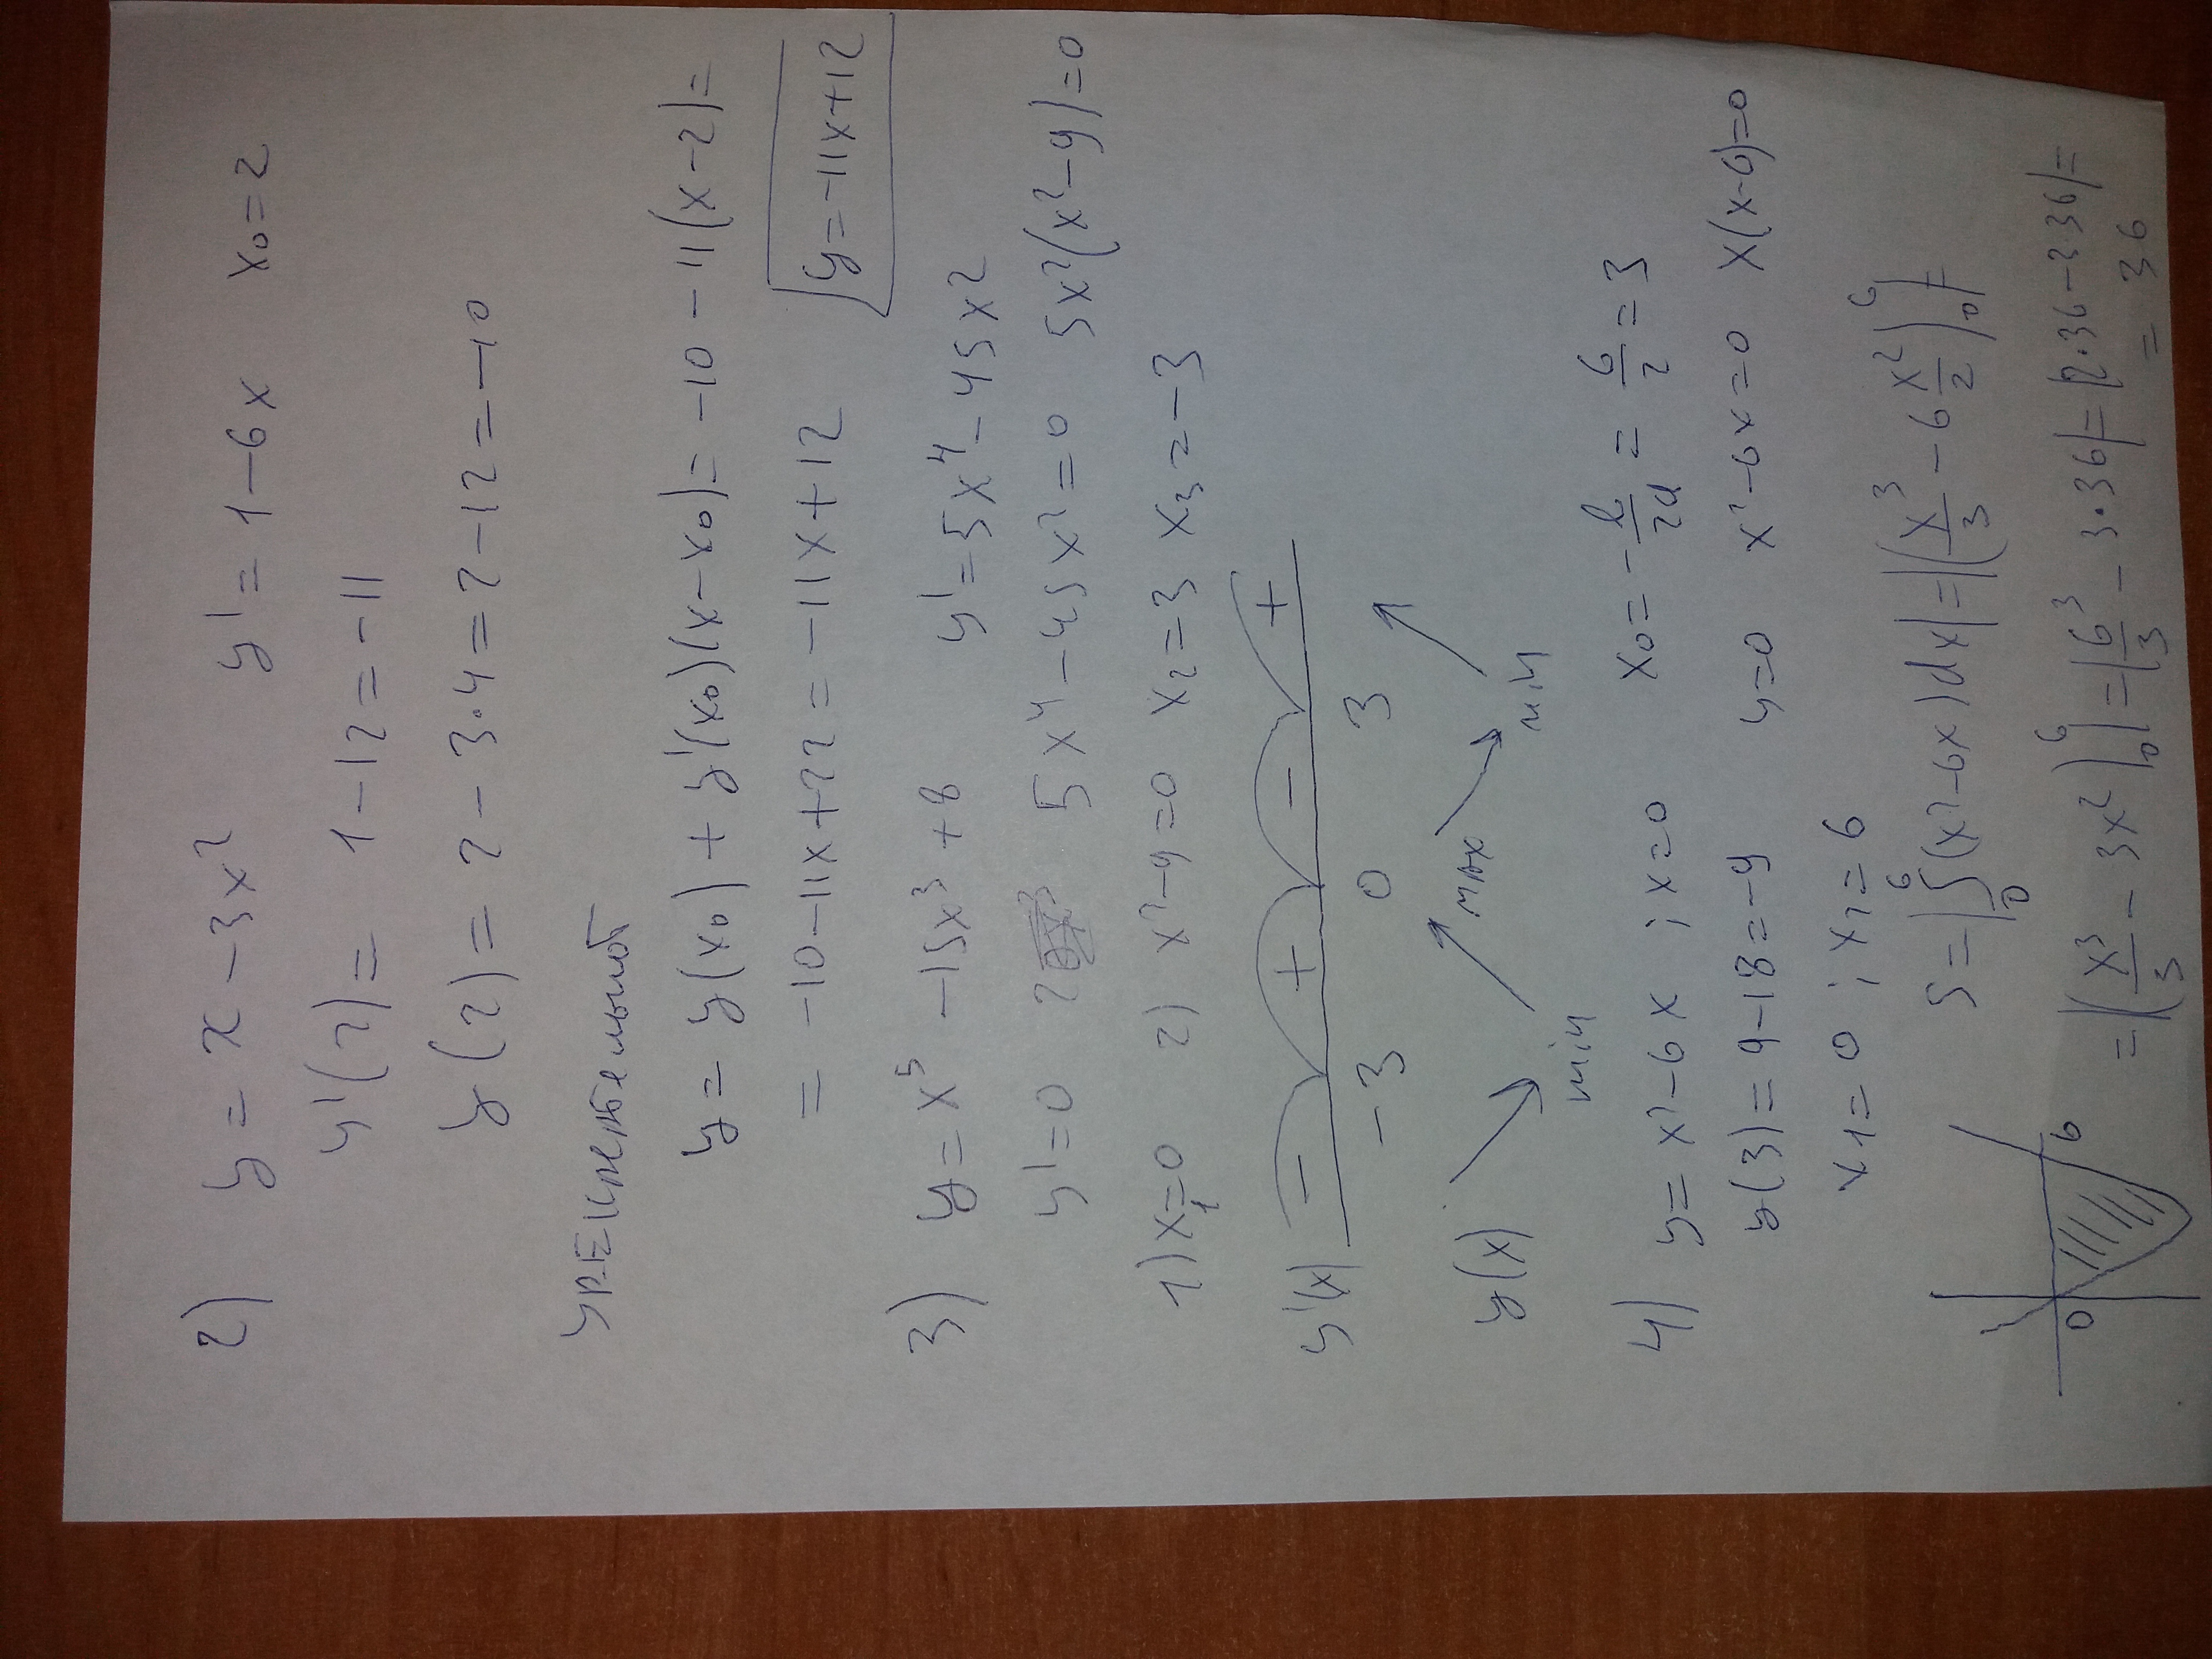 2) y = x - 3x² y' = 1 - 6x x₀ = 2
y'(2) = 1 - 12 = -11
y(2) = 2 - 3·4 = 2 - 12 = -10
y = y(x₀) + y'(x₀)(x - x₀) = -10 - 11(x - 2) =
= -10 - 11x + 22 = -11x + 12 y = -11x + 12
3) y = x⁵ - 15x³ + 8 y' = 5x⁴ - 45x²
y' = 0 5x⁴ - 45x² = 0 5x²(x² - 9) = 0
1) x₁ = 0 2) x² - 9 = 0 x₂ = 3 x₃ = -3
y'(x) - + - +
-3 0 3
y(x) ↘ ↗ ↘ ↗
min max min
4) y = x² - 6x ; x = 0 x₀ = -b/2a = 6/2 = 3
y(3) = 9 - 18 = -9 y = 0 x² - 6x = 0 x(x - 6) = 0
x₁ = 0 ; x₂ = 6
S = |∫₀⁶ (x² - 6x) dx| = |(x³/3 - 6 x²/2)|₀⁶| =
= |(x³/3 - 3x²)|₀⁶| = |6³/3 - 3·36| = |2·36 - 3 36| =
= 36
0 6